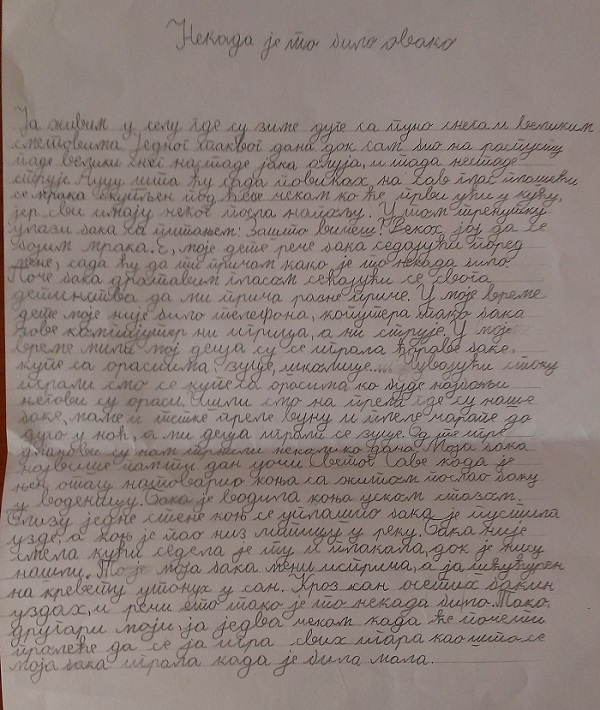 Некада је то било овако
Ја живим у селу где су зиме дуге са пуно снега и великим
сметовима. Једног таквог дана док сам био на распусту
паде велики снег настаде јака олуја, и тада нестаде
струје. Ууу шта ћу сада повиках, на сав глас плашећи
се мрака скупљен под ћебе чекам ко ће први ући у кућу,
јер сви имају неког посла напољу. У том тренутку
улази бака са питањем: Зашто вичеш? Рекох јој да се
бојим мрака. Е, моје дете рече бака седајући поред
мене, сада ћу да ти причам како је то некада било.
Поче бака дрхтавим гласом сећајући се свога
детињства да ми прича разне приче. У моје време
дете моје није било телефона, копутера тако бака
зове компјутер ни игрица, а ни струје. У моје
време мили мој деца су се играла ћораве баке,
купе са орасима, зуце, школице... Чувајући стоку
играли смо се купе са орасима ко буде најбољи
његови су ораси. Ишли смо на прела где су наше
баке, маме и тетке преле вуну и плеле чарапе до
дуго у ноћ, а ми деца играли се зуце. Од те игре
дланови су нам трнели неколико дана. Моја бака
највише памти дан уочи Светог Саве када је
њен отац натоварио коња са житом послао баку
у воденицу. Бака је водила коња уском стазом.
Близу једне стене коњ се уплашио бака је пустила
узде, а коњ је пао низ литицу у реку. Бака није
смела кући седела је ту и плакала, док је нису
нашли. То је моја бака мени исприча, а ја шћућурен
на кревету утонух у сан. Кроз сан осетих бакин
уздах, и речи ето тако је то некада било. Тако
другари моји ја једва чекам када ће почети
пролеће да се ја игра свих игара као што се
моја бака играла када је била мала.